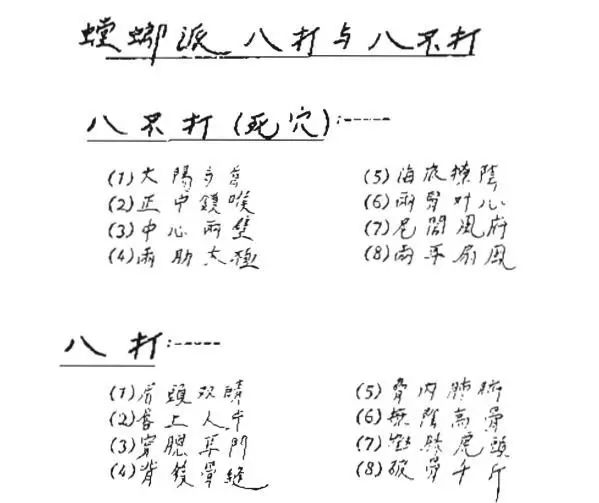 螳螂派 八打与八不打
八不打(死穴):-----
(1)太陽
(2)正中鎖喉
(3)中心兩壁
(4)兩肋太極
(5)海底撩陰
(6)兩腎对心
(7)尾閭風府
(8)兩耳扇風
八打:-----
(1)眉頭双睛
(2)唇上人中
(3)穿腮耳門
(4)背後骨縫
(5)脅內肺腑
(6)撩陰高骨
(7)膝虎頭
(8)破骨千斤